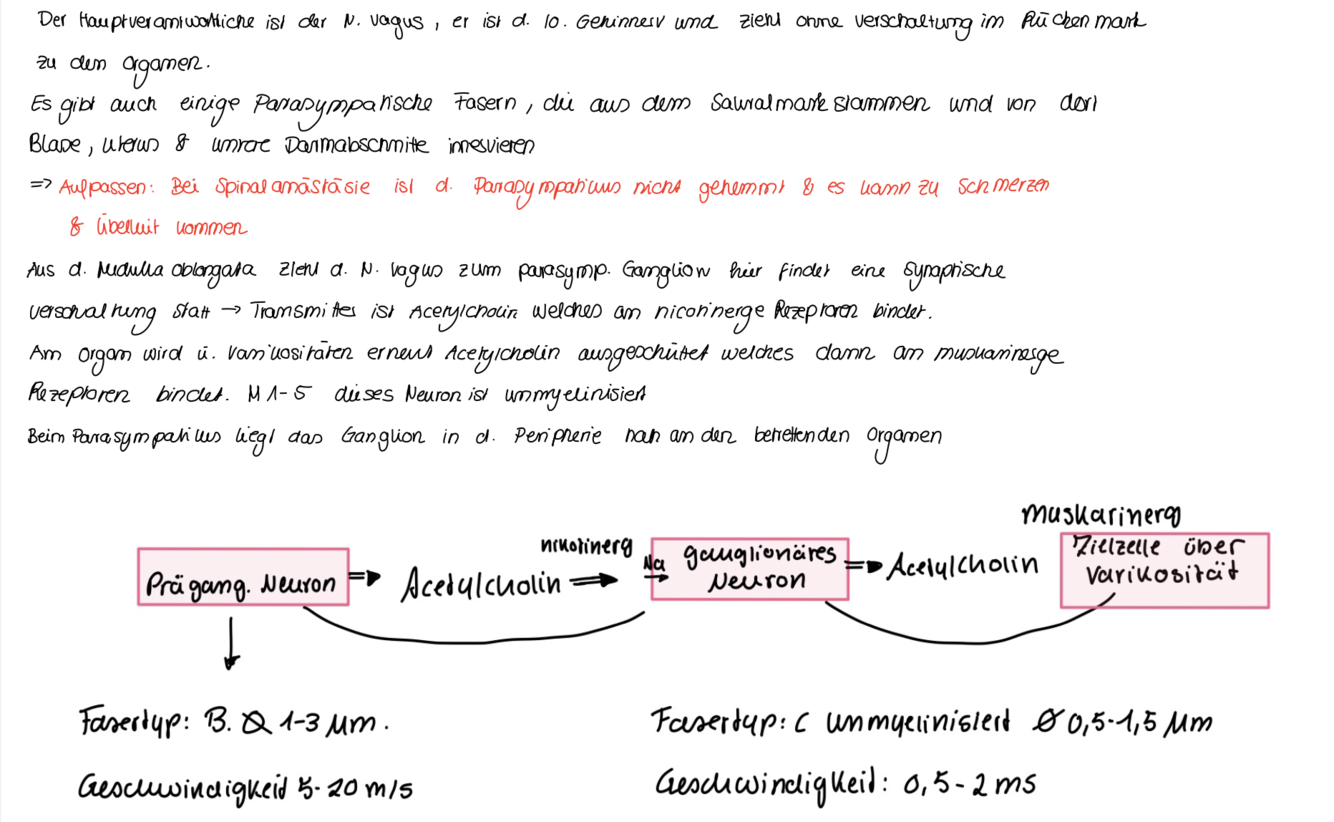 Der Hauptverantwortliche ist der N. vagus, er ist d. 10. Gehirnnerv und zieht ohne verschaltung im Rückenmark
zu den Organen.
Es gibt auch einige Parasympatische Fasern, die aus dem Sakralmark stammen und von dort
Blase, uterus & untere Darmabschnitte innervieren
=> Aufpassen: Bei Spinalanästäsie ist d. Parasympatikus nicht gehemmt & es kann zu Schmerzen
& Übelkeit kommen
Aus d. Medulla oblongata zieht d. N. vagus zum parasymp. Ganglion hier findet eine synaptische
verschaltung statt → Transmitter ist Acetylcholin welches an nicotinerge Rezeptoren bindet.
Am Organ wird ü. Varikositäten erneut Acetylcholin ausgeschüttet welches dann an muskarinerge
Rezeptoren bindet. M 1-5 dieses Neuron ist unmyelinisiert
Beim Parasympatikus liegt das Ganglion in d. Peripherie nah an den betreffenden Organen
muskarinerg
nikotinerg
Prägang. Neuron => Acetylcholin => Na → ganglionäres Neuron => Acetylcholin
Zielzelle über
Varikosität
Fasertyp: B. Ø 1-3 µm.
Geschwindigkeit 5-20 m/s
Fasertyp: C unmyelinisiert Ø 0,5-1,5 µm
Geschwindigkeit: 0,5-2 ms